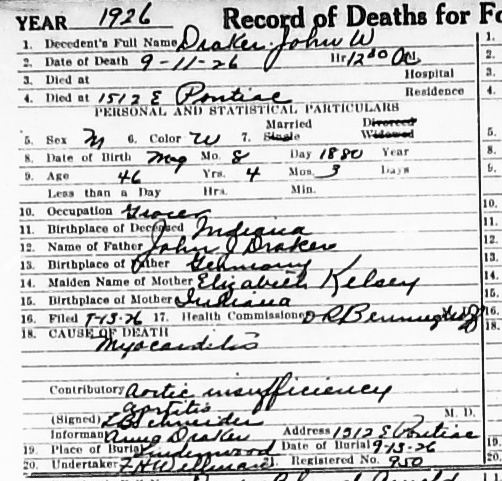 YEAR 1926 Record of Deaths for Fo
1. Decedent's Full Name Draker John W
2. Date of Death 9-11-26 Hr 12 30
3. Died at Hospital
4. Died at 1512 E Pontiac Residence
PERSONAL AND STATISTICAL PARTICULARS
5. Sex M 6. Color W 7. Married Single Divorced Widowed
8. Date of Birth May Mo. 8 Day 1880 Year
9. Age 46 Yrs. 4 Mos. 3 Days
Less than a Day Hrs. Min.
10. Occupation Grocer
11. Birthplace of Deceased Indiana
12. Name of Father John J Draker
13. Birthplace of Father Germany
14. Maiden Name of Mother Elizabeth Kelsey
15. Birthplace of Mother Indiana
16. Filed 9-13-26 17. Health Commissioner
18. CAUSE OF DEATH
Myocarditis
Contributory Aortic insufficiency
Aortitis
(Signed) Schneider M. D.
Informant Draker Address 1512 E Pontiac
19. Place of Burial Lindenwood Date of Burial 9-13-26
20. Undertaker 21. Registered No. 950